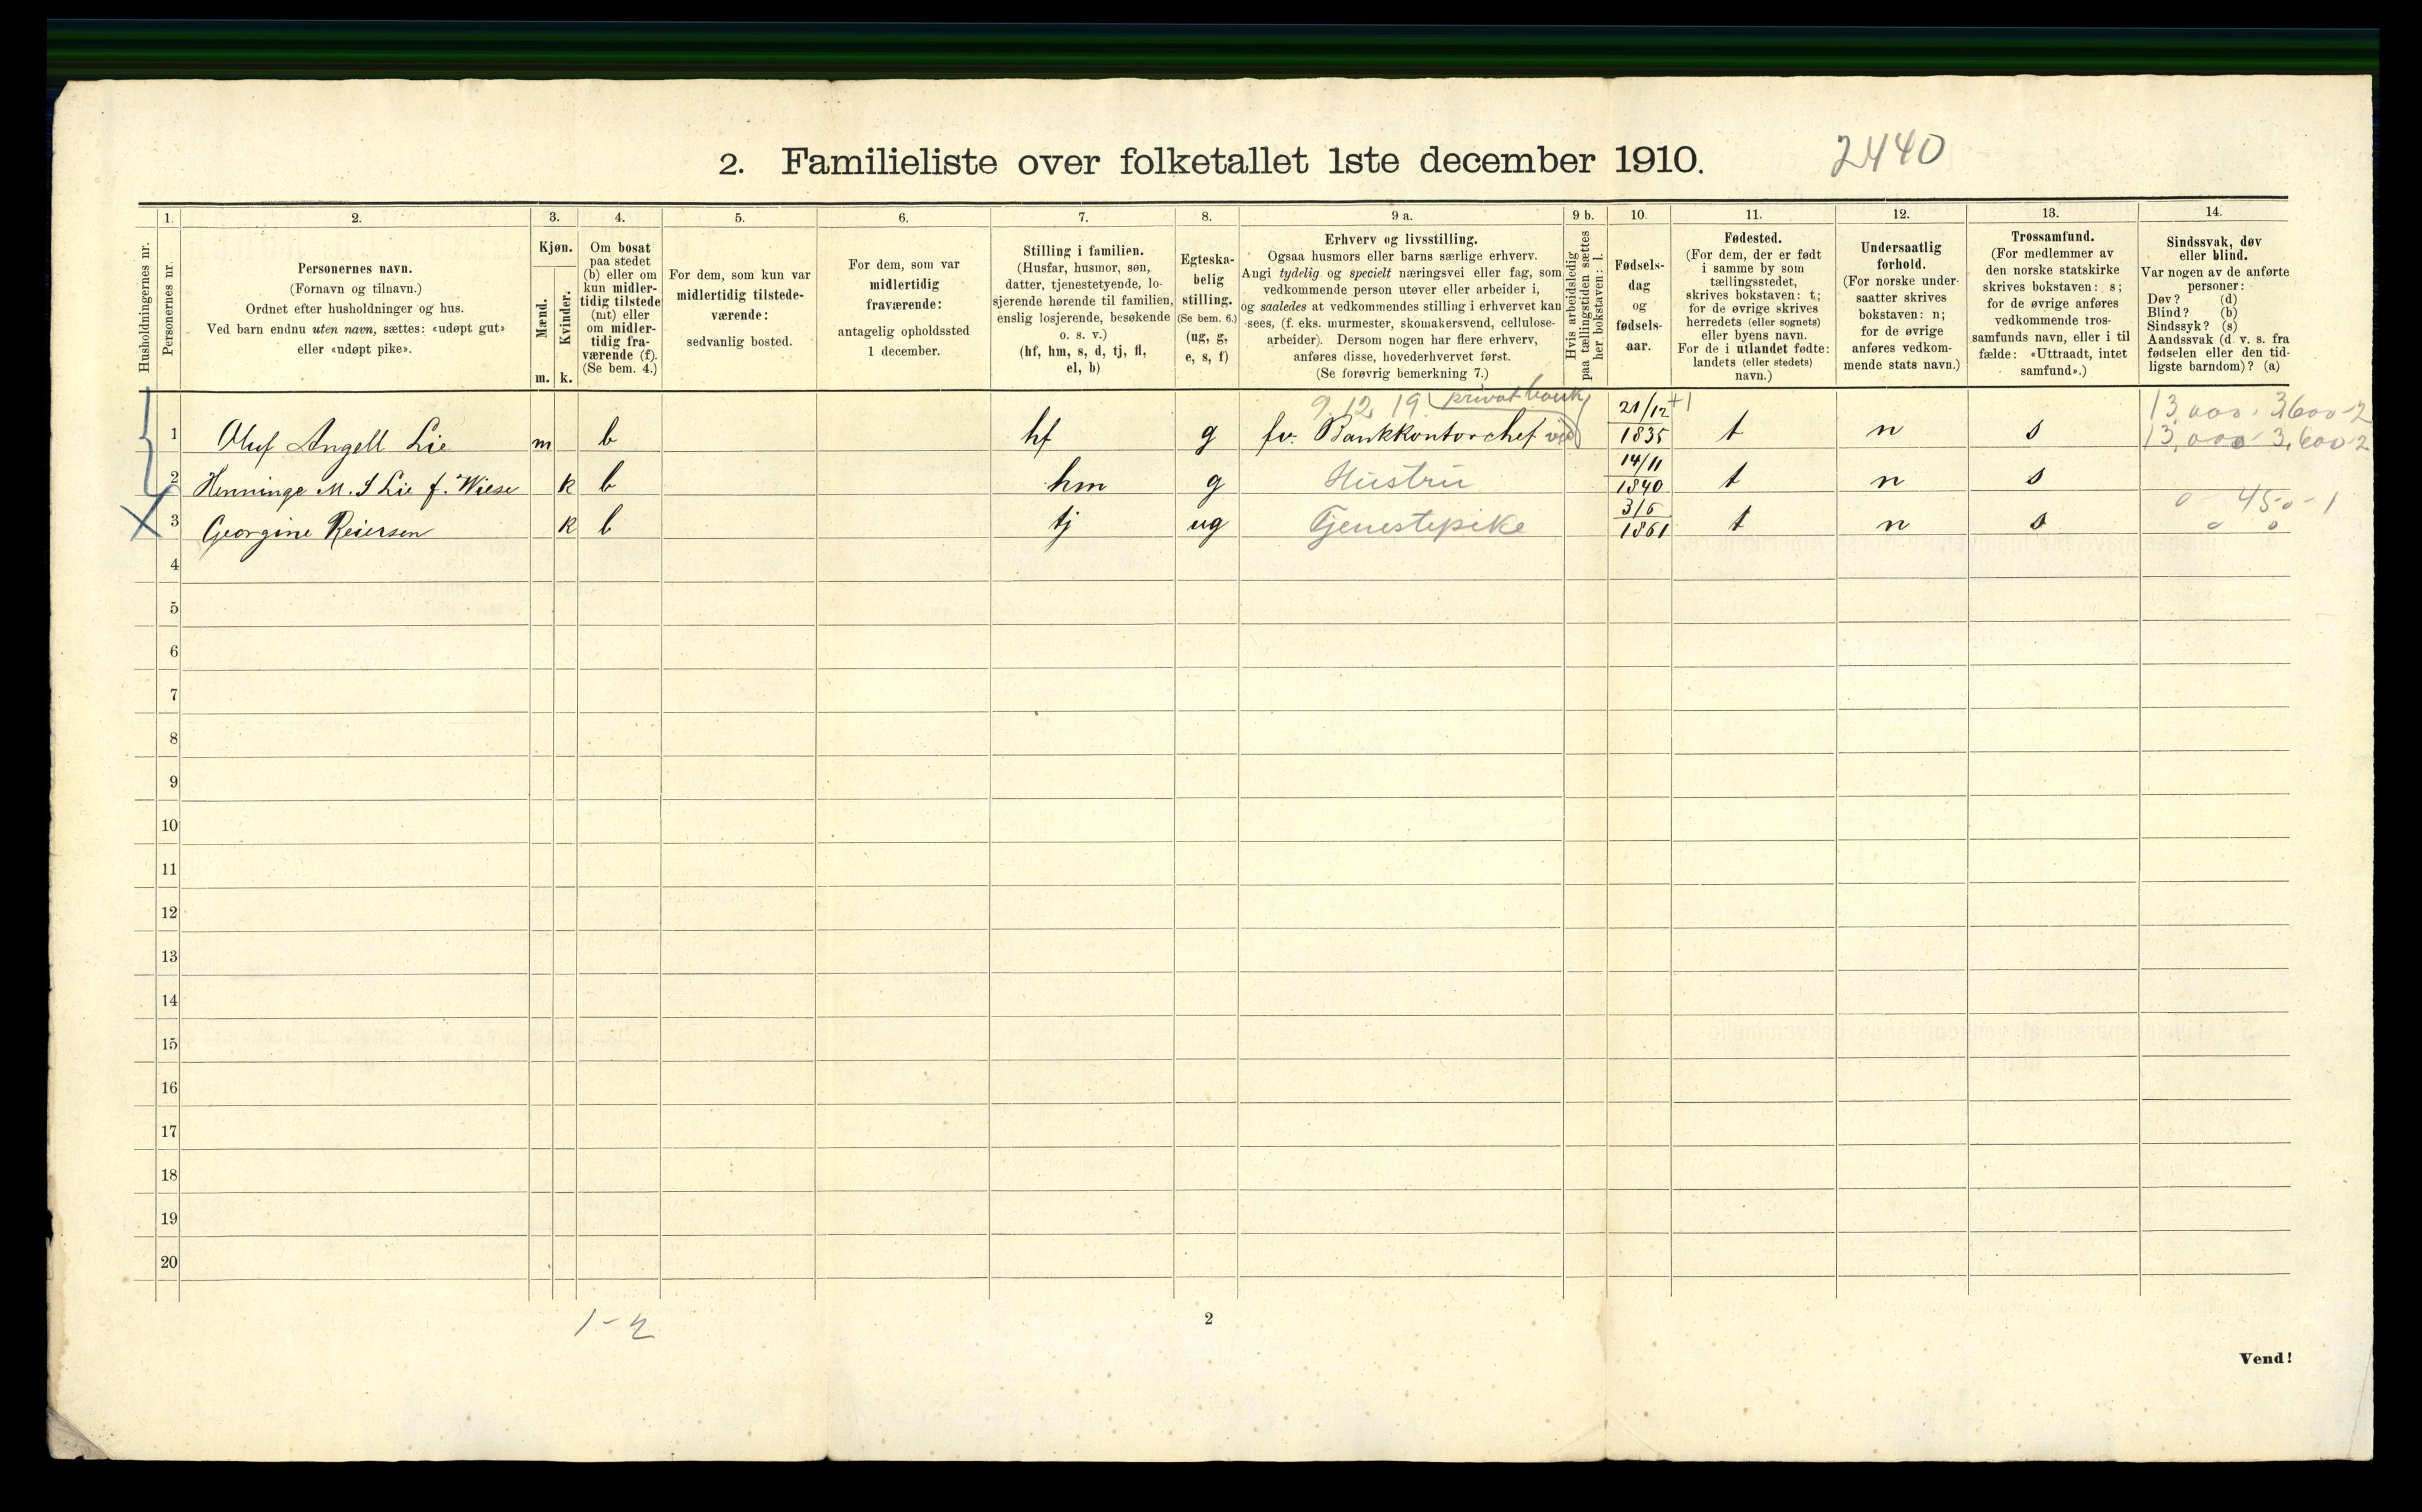 2. Familieliste over folketallet 1ste december 1910.
2440
Husholdningernes nr.
1.
Personernes nr.
2.
Personernes navn.
(Fornavn og tilnavn.)
Ordnet efter husholdninger og hus.
Ved barn endnu uten navn, sættes: «udøpt gut»
eller «udøpt pike».
3.
Kjøn.
Mænd.
Kvinder.
m. k.
4.
Om bosat
paa stedet
(b) eller om
kun midler-
tidig tilstede
(mt) eller
om midler-
tidig fra-
værende (f).
(Se bem. 4.)
5.
For dem, som kun var
midlertidig tilstede-
værende:
sedvanlig bosted.
6.
For dem, som var
midlertidig
fraværende:
antagelig opholdssted
1 december.
7.
Stilling i familien.
(Husfar, husmor, søn,
datter, tjenestetyende, lo-
sjerende hørende til familien,
enslig losjerende, besøkende
o. s. v.)
(hf, hm, s, d, tj, fl,
el, b)
8.
Egteska-
belig
stilling.
(Se bem. 6.)
(ug, g,
e, s, f)
9 a.
Erhverv og livsstilling.
Ogsaa husmors eller barns særlige erhverv.
Angi tydelig og specielt næringsvei eller fag, som
vedkommende person utøver eller arbeider i,
og saaledes at vedkommendes stilling i erhvervet kan
sees, (f. eks. murmester, skomakersvend, cellulose-
arbeider). Dersom nogen har flere erhverv,
anføres disse, hovederhvervet først.
(Se forøvrig bemerkning 7.)
9 b.
Hvis arbeidsledig
paa tællingstiden sættes
her bokstaven: l.
10.
Fødsels-
dag
og
fødsels-
aar.
11.
Fødested.
(For dem, der er født
i samme by som
tællingsstedet,
skrives bokstaven: t;
for de øvrige skrives
herredets (eller sognets)
eller byens navn.
For de i utlandet fødte:
landets (eller stedets)
navn.)
12.
Undersaatlig
forhold.
(For norske under-
saatter skrives
bokstaven: n;
for de øvrige
anføres vedkom-
mende stats navn.)
13.
Trossamfund.
(For medlemmer av
den norske statskirke
skrives bokstaven: s;
for de øvrige anføres
vedkommende tros-
samfunds navn, eller i til
fælde: «Uttraadt, intet
samfund».)
14.
Sindssvak, døv
eller blind.
Var nogen av de anførte
personer:
Døv? (d)
Blind? (b)
Sindssyk? (s)
Aandssvak (d. v. s. fra
fødselen eller den tid-
ligste barndom)? (a)
9.12.19 privatbank 21/12 +1 13,000. 3600-2
1 Oluf Angell Lie m b hf g fv. Bankkontorchef ved 1835 t n s 13,000 3,600 2
14/11
2 Henninge M. S Lie f. Wiese k b hm g Hustru 1840 t n s
3/6 0 450-1
3 Georgine Reiersen k b tj ug Tjenestepike 1861 t n s 0 0
4
5
6
7
8
9
10
11
12
13
14
15
16
17
18
19
20
1-2
2
Vend!